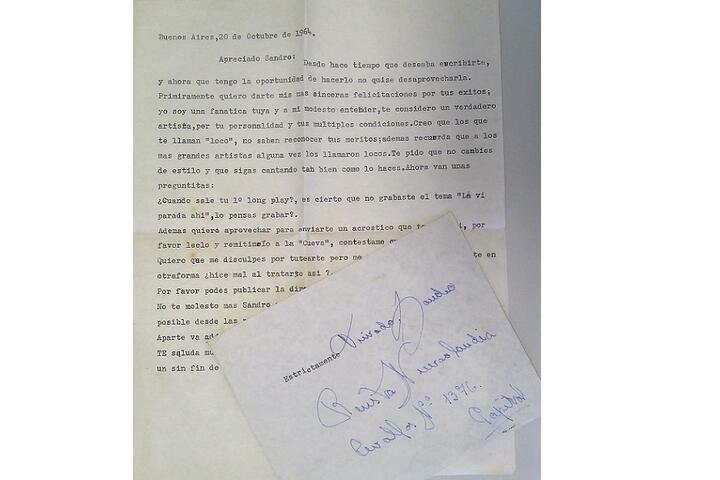 Buenos Aires,20 de Octubre de 1964.
Apreciado Sandro:
Desde hace tiempo que deseaba escribirte,
y ahora que tengo la oportunidad de hacerlo no quise desaprovecharla.
Primiramente quiero darte mis mas sinceras felicitaciones por tus exitos;
yo soy una fanatica tuya y a mi modesto entehder,te considero un verdadero
artista,por tu personalidad y tus multiples condiciones.Creo que los que
te llaman "loco", no saben reconocer tus meritos;ademas recuerda que a los
mas grandes artistas alguna vez los llamaron locos.Te pido que no cambies
de estilo y que sigas cantando tah bien como lo haces.Ahora van unas
preguntitas:
¿Cuando sale tu 1º long play?, es cierto que no grabaste el tema "La vi
parada ahi",lo pensas grabar?.
Ademas quiero aprovechar para enviarte un acrostico que
favor leelo y remitimelo a la "Cueva", contestame
Quiero que me disculpes por tutearte pero me
otraforma ¿hice mal al tratarte asi ?.
Por favor podes publicar la
No te molesto mas Sandro
posible desde las
Aparte va
TE saluda
un sin fin de
Estrictamente Privado Sandro
Revista Nuevaolandia
Cevallos Nº 1376.
Capital